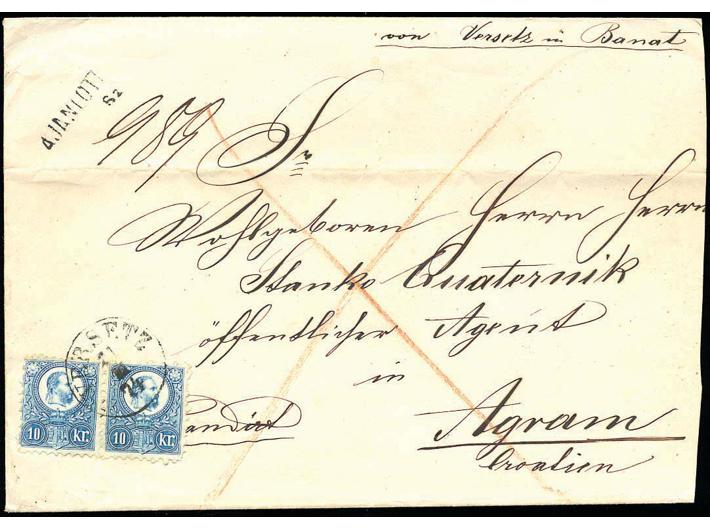 von Versetz in Banat
AJÁNLOTT
82
989
Sr
Wohlgeboren Herrn Herrn
Stanko Quaternik
öffentlicher Agent
in
Agram
Croatien
VERSETZ
21
10 Kr. 10 Kr.